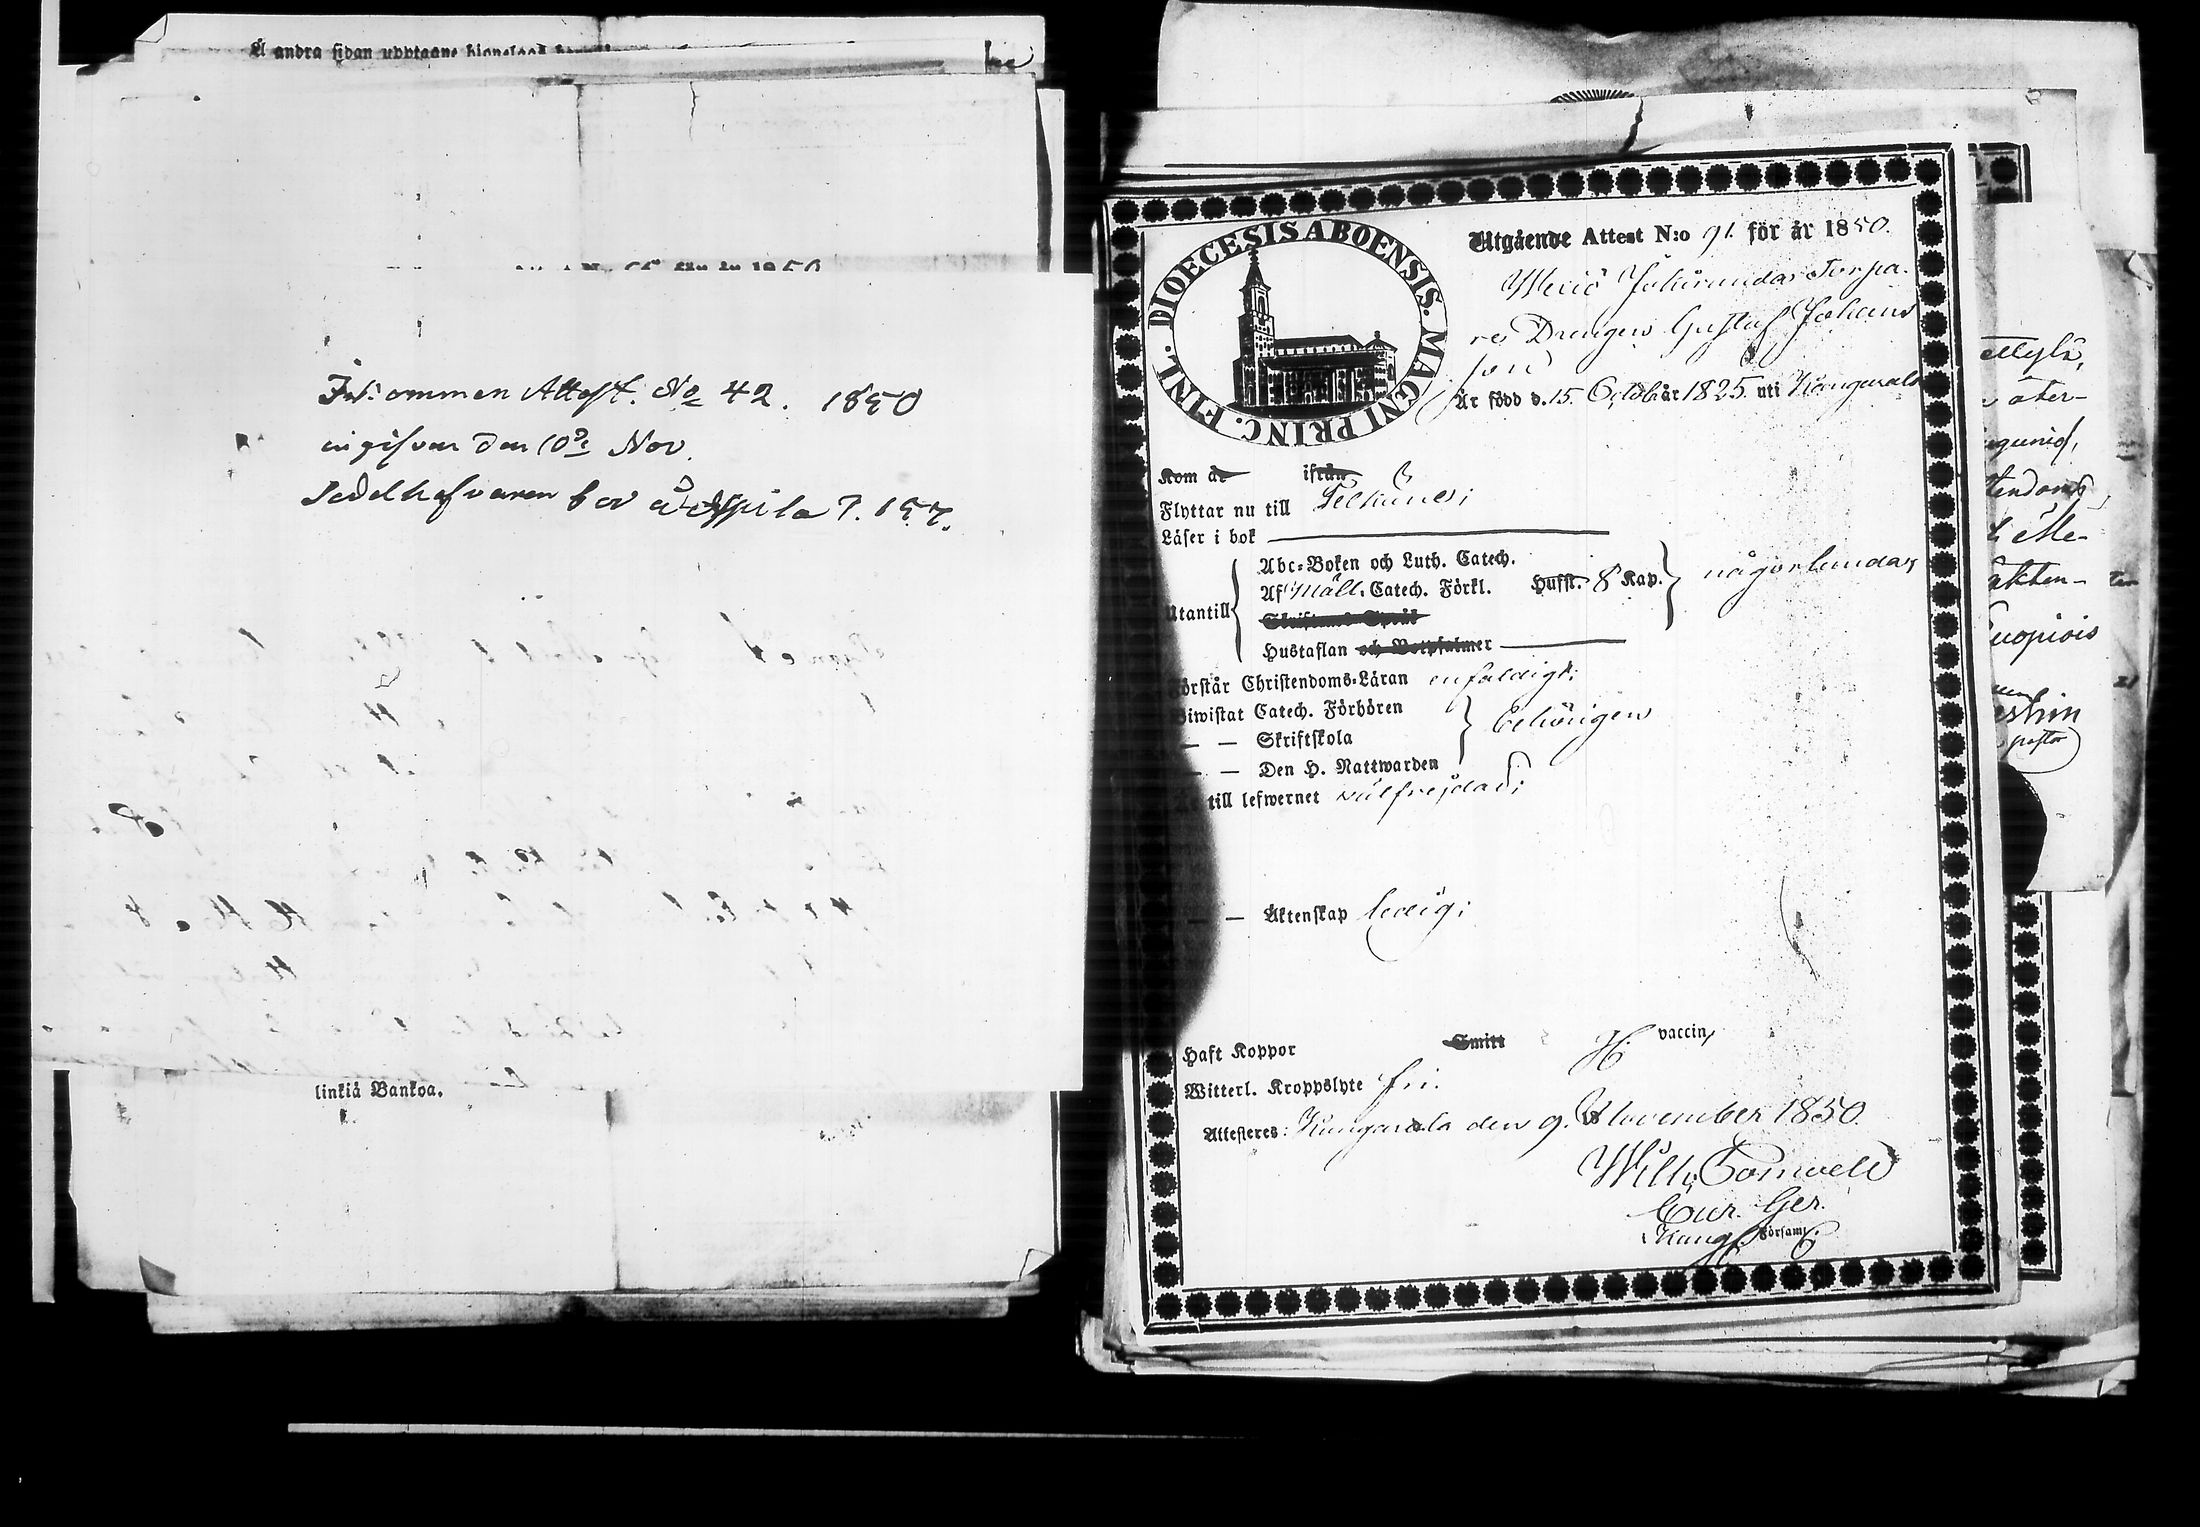 Å andra sidan upptagne
Inkommen Attest. No 42. 1850
ingifven den 10de Nov.
Sedelhafvaren bor å p. 157.
linkiä Bankoa.
DIOECESIS ABOENSIS. MAGNI PRINC. FINL.
Utgående Attest N:o 91. för år 1850.
Torpa-
re Drengen Gustaf Johans
son
Är född d. 15. Octob. år 1825. uti Kangasala
Kom år ifrån
Flyttar nu till Pelkäne;
Läser i bok
Utantill
Abc-Boken och Luth. Catech.
Af Mall. Catech. Förkl. Husst. 8 Kap. någorlunda;
Skriftens Språk
Hustaflan och Botpsalmer
Förstår Christendoms-Läran enfaldigt;
Biwistat Catech. Förhören
— — Skriftskola behörigen
— — Den H. Nattwarden
till lefwernet välfrejdad;
— — Äktenskap ledig;
Haft Koppor Smitt H. vaccin,
Witterl. Kroppslyte fri.
Attesteres: Kangasala den 9. November 1850.
Wilh.
Cur. Ger.
Kang. Församl.
ater-
tendoms
äkten-
uopiois